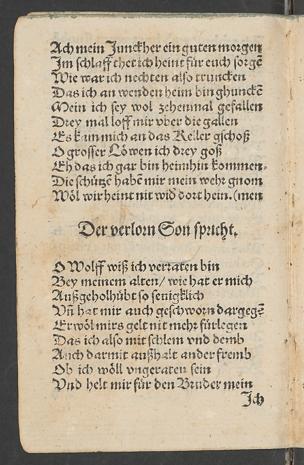 Ach mein Junckher ein guten morgen
Im schlaff thet ich heint für euch sorgē
Wie war ich nechten also truncken
Das ich an wenden heim bin ghunckē
Mein ich sey wol zehenmal gefallen
Drey mal loff mir vber die gallen
Es kam mich an das Keller gschoß
O grosser Löwen ich drey goß
Eh das ich gar bin heimhin kommen,
Die schützē habē mir mein wehr gnom
Wöl wir heint nit wid dort hein. (men
Der verlorn Son spricht.
O Wolff wiß ich verraten bin
Bey meinem alten / wie hat er mich
Außgeholhübt so senigklich
Vn̄ hat mir auch geschworn dargegē
Er wöl mirs gelt nit mehr fürlegen
Das ich also mit schlem vnd demb
Auch darmit außhalt ander fremb
Ob ich wöll vngeraten sein
Vnd helt mir für den Bruder mein
Ich